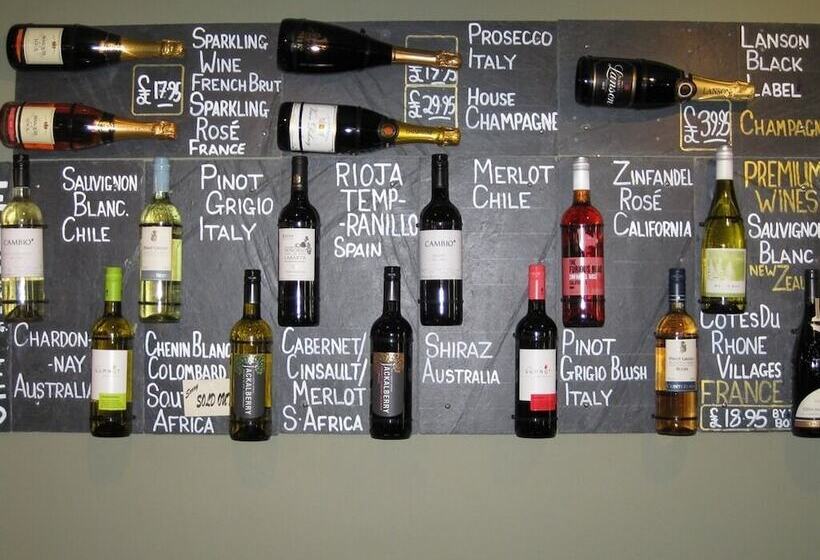 SPARKLING
WINE
FRENCH BRUT
£17.95
SPARKLING
ROSÉ
FRANCE
PROSECCO
ITALY
HOUSE
CHAMPAGNE
£29.95
LANSON
BLACK
LABEL
CHAMPAGN
£39.95
Lanson
SAUVIGNON
BLANC.
CHILE
PINOT
GRIGIO
ITALY
RIOJA
TEMP-
-RANILLO
SPAIN
MERLOT
CHILE
ZINFANDEL
ROSÉ
CALIFORNIA
PREMIUM
WINES
SAUVIGNO
BLANC
NEW ZEA
CAMBIO
CAMBIO
CHARDON-
-NAY
AUSTRALIA
CHENIN BLANC
COLOMBARD
SOU
AFRICA
Sorry
SOLD OUT
JACKALBERRY
CABERNET/
CINSAULT/
MERLOT
S.AFRICA
JACKALBERRY
SHIRAZ
AUSTRALIA
PINOT
GRIGIO BLUSH
ITALY
CÔTES DU
RHONE
VILLAGES
FRANCE
£18.95 BY
BO